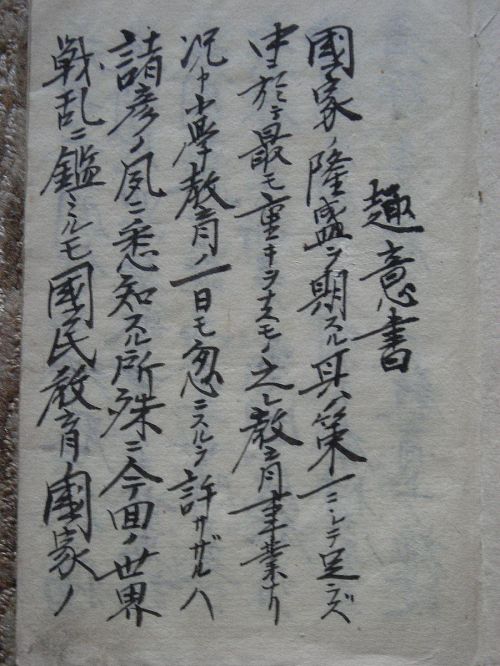 趣意書
國家ノ隆盛ヲ期スル其ノ策一ニシテ足ラズ
中於テ最モ重キヲナスモノ之レ教育事業ナリ
況ヤ小學教育ノ一日モ忽ニスルヲ許サザルハ
諸彦ノ夙ニ悉知スル所殊ニ今回ノ世界
戦乱ニ鑑ミルモ國民教育ノ國家ノ